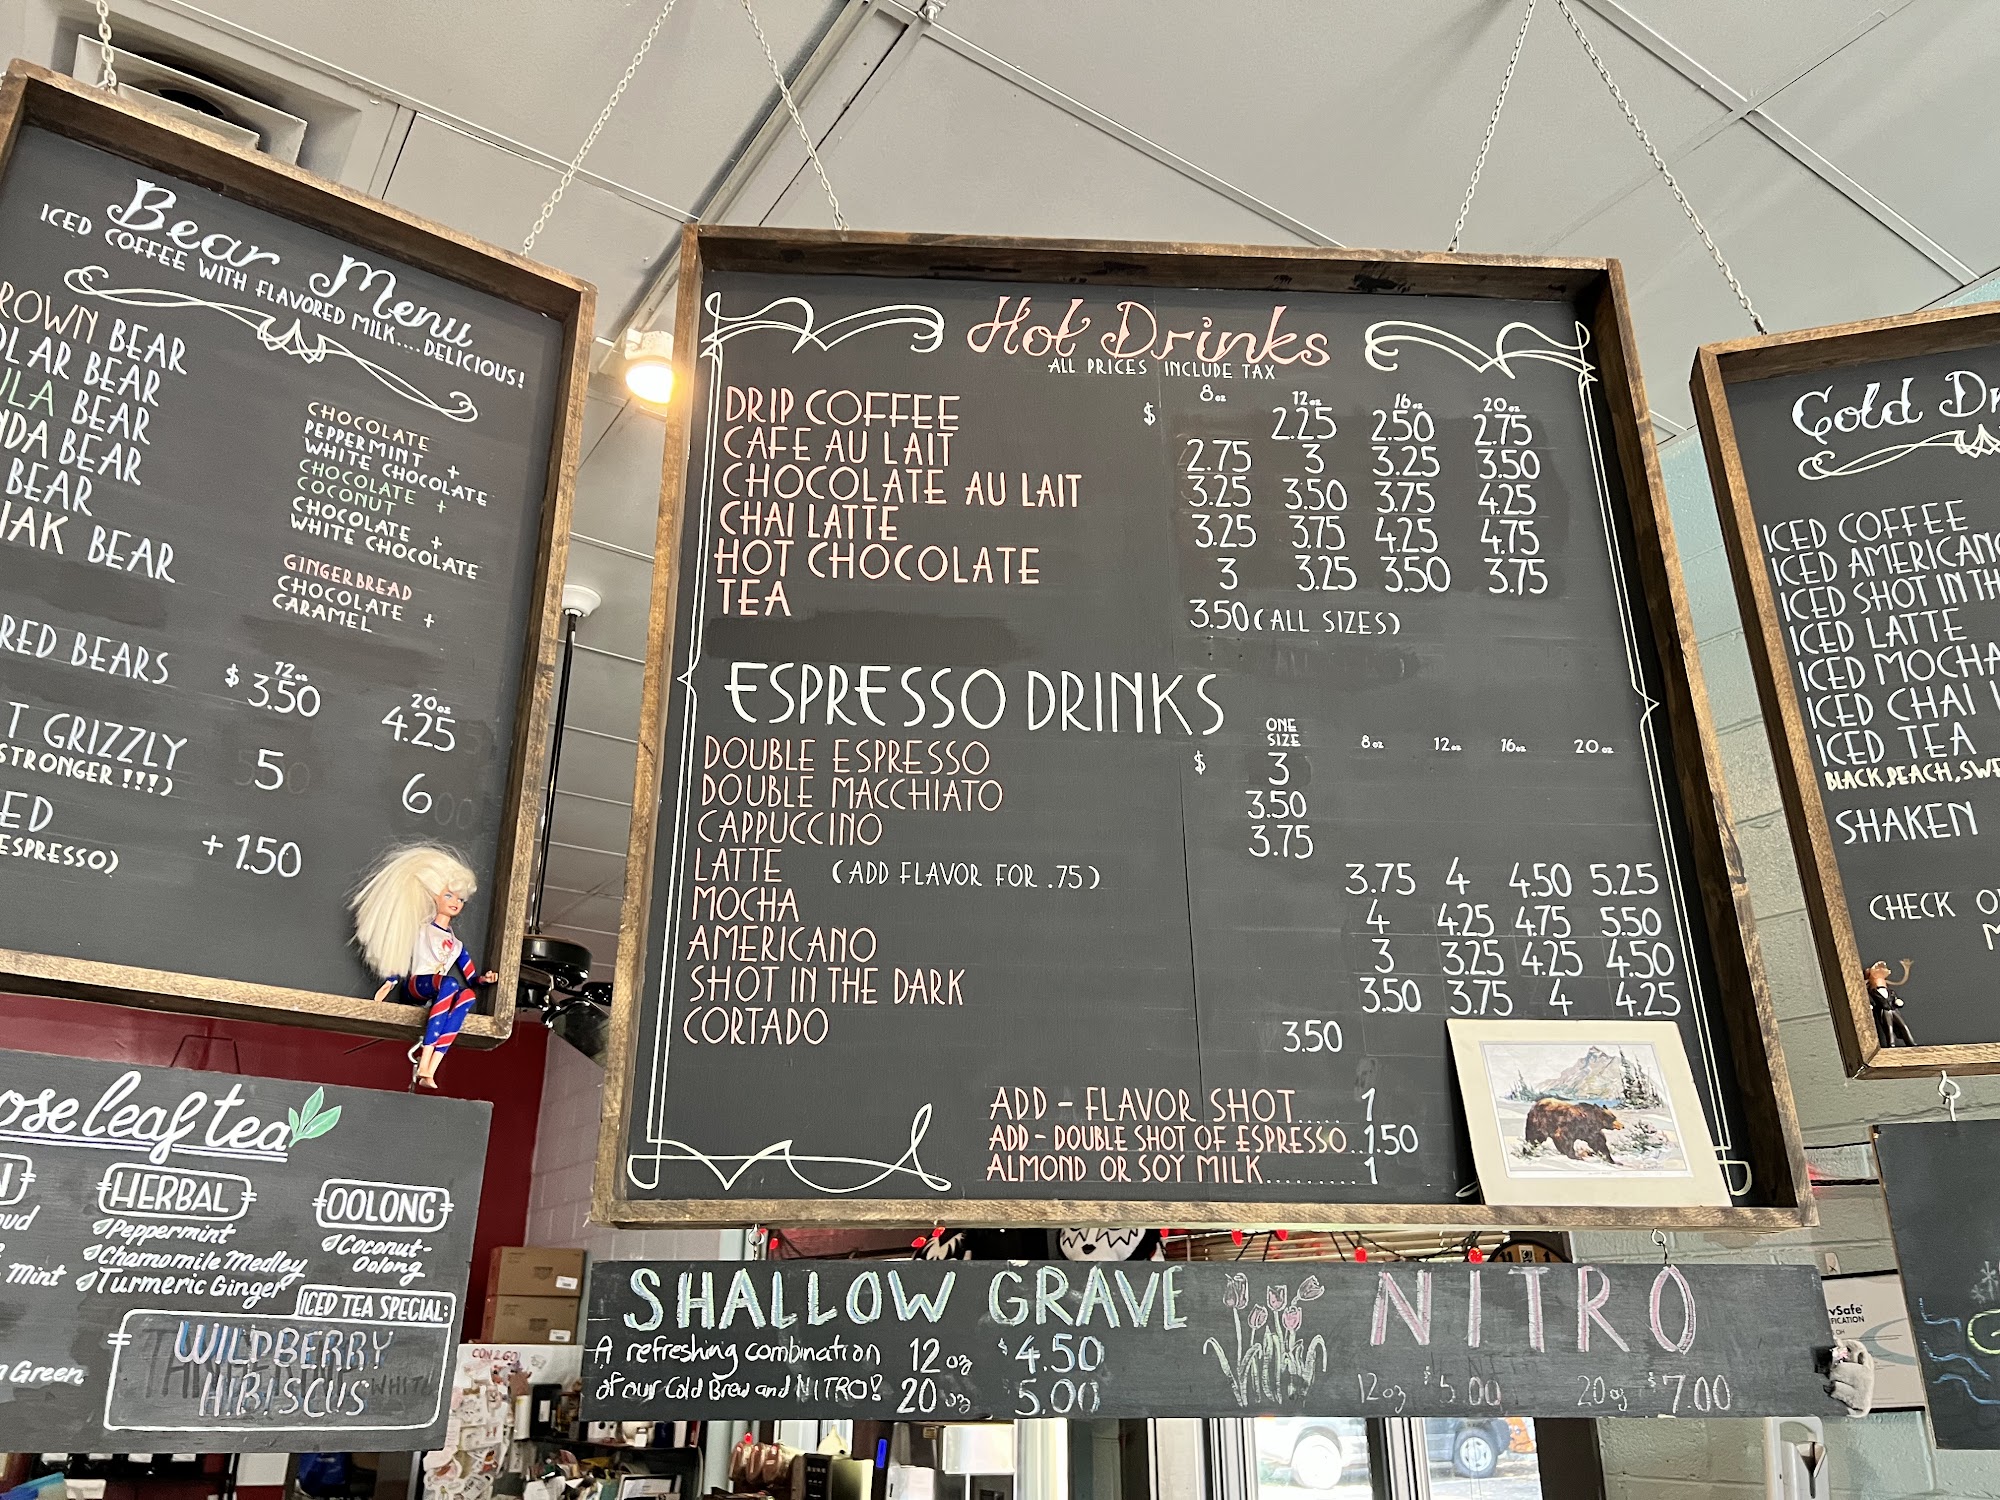 Bear Menu
ICED COFFEE WITH FLAVORED MILK....DELICIOUS!
BEAR
BEAR
BEAR
BEAR
BEAR
BEAR
CHOCOLATE
PEPPERMINT +
WHITE CHOCOLATE
CHOCOLATE +
COCONUT
CHOCOLATE +
WHITE CHOCOLATE
GINGERBREAD
CHOCOLATE +
CARAMEL
12oz 20oz
BEARS $ 3.50 4.25
GRIZZLY 5 6
STRONGER!!!)
+ 1.50
ESPRESSO)
Hot Drinks
ALL PRICES INCLUDE TAX
8oz 12oz 16oz 20oz
DRIP COFFEE $ 2.25 2.50 2.75
CAFE AU LAIT 2.75 3 3.25 3.50
CHOCOLATE AU LAIT 3.25 3.50 3.75 4.25
CHAI LATTE 3.25 3.75 4.25 4.75
HOT CHOCOLATE 3 3.25 3.50 3.75
TEA 3.50 (ALL SIZES)
ESPRESSO DRINKS
ONE SIZE 8oz 12oz 16oz 20oz
DOUBLE ESPRESSO $ 3
DOUBLE MACCHIATO 3.50
CAPPUCCINO 3.75
LATTE (ADD FLAVOR FOR .75) 3.75 4 4.50 5.25
MOCHA 4 4.25 4.75 5.50
AMERICANO 3 3.25 4.25 4.50
SHOT IN THE DARK 3.50 3.75 4 4.25
CORTADO 3.50
ADD - FLAVOR SHOT..... 1
ADD - DOUBLE SHOT OF ESPRESSO..1.50
ALMOND OR SOY MILK......... 1
Cold
ICED COFFEE
ICED AMERICANO
ICED SHOT IN TH
ICED LATTE
ICED MOCHA
ICED CHAI
ICED TEA
BLACK, PEACH, SWE
SHAKEN
CHECK
leaf tea
HERBAL
Peppermint
Chamomile Medley
Turmeric Ginger
OOLONG
Coconut-
Oolong
Mint
Green
ICED TEA SPECIAL:
WILDBERRY
HIBISCUS
SHALLOW GRAVE
A refreshing combination 12 oz $4.50
of our Cold Brew and NITRO! 20 oz 5.00
NITRO
12oz $5.00 20oz $7.00
CON 2 GO!
vSafe